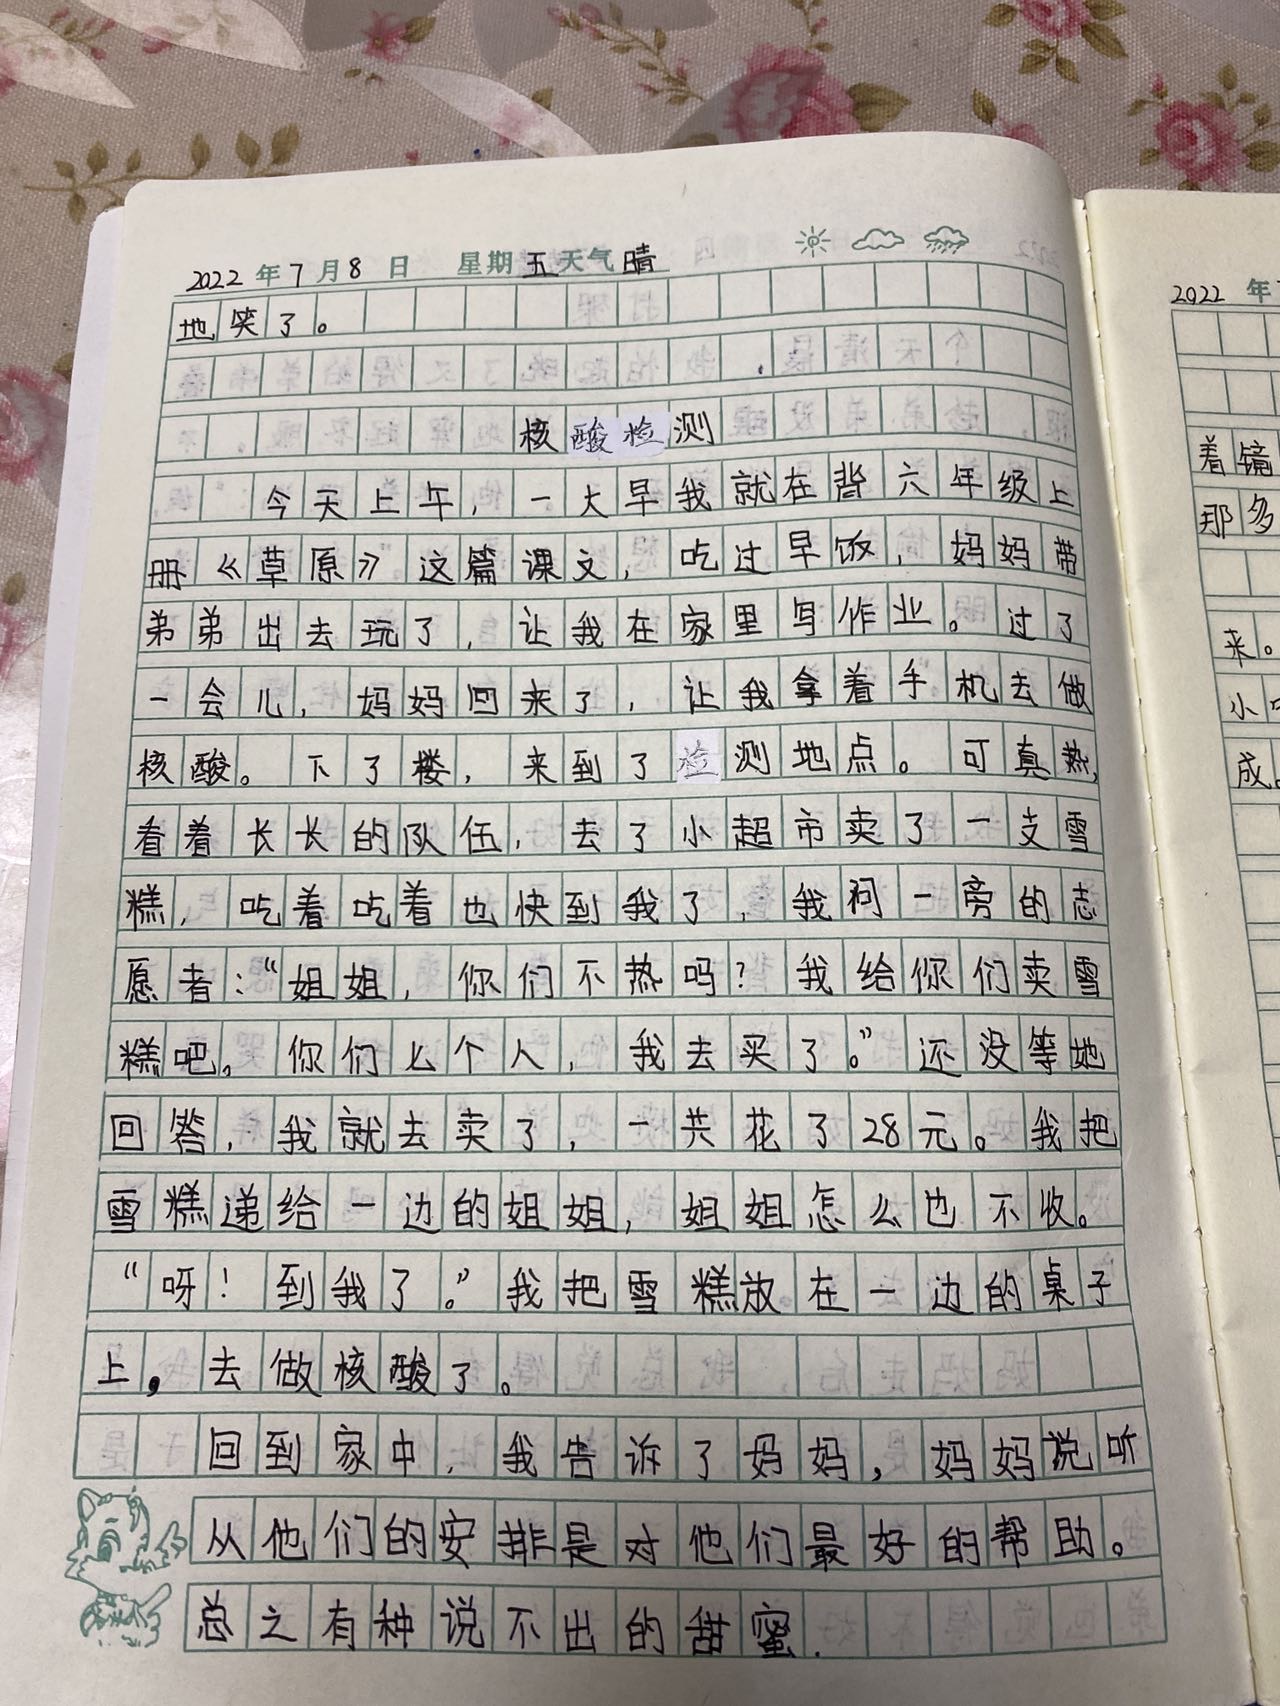 2022年7月8日 星期五天气晴
地笑了。
核酸检测
今天上午，一大早我就在背六年级上
册《草原》这篇课文，吃过早饭，妈妈带
弟弟出去玩了，让我在家里写作业。过了
一会儿，妈妈回来了，让我拿着手机去做
核酸。下了楼，来到了检测地点。可真热，
看着长长的队伍，去了小超市卖了一支雪
糕，吃着吃着也快到我了，我问一旁的志
愿者：“姐姐，你们不热吗？我给你们卖雪
糕吧。你们几个人，我去买了。”还没等她
回答，我就去卖了，一共花了28元。我把
雪糕递给一边的姐姐，姐姐怎么也不收。
“呀！到我了。”我把雪糕放在一边的桌子
上，去做核酸了。
回到家中，我告诉了妈妈，妈妈说听
从他们的安排是对他们最好的帮助。
总之有种说不出的甜蜜.
2022年
着镜
那多
来。
小
成。